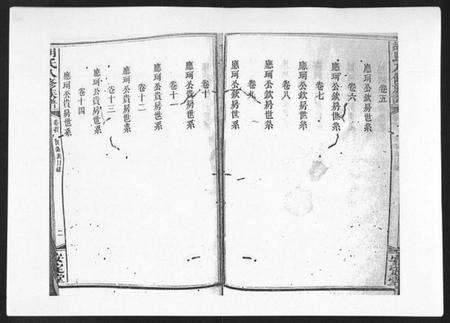 卷五
應珂公欽房世系
卷六
應珂公欽房世系
卷七
應珂公欽房世系
卷八
應珂公欽房世系
卷九
應珂公欽房世系
卷十
應珂公貴房世系
卷十一
應珂公貴房世系
卷十二
應珂公貴房世系
卷十三
應珂公貴房世系
卷十四
胡氏八修族譜
卷首
目錄
二
安定堂